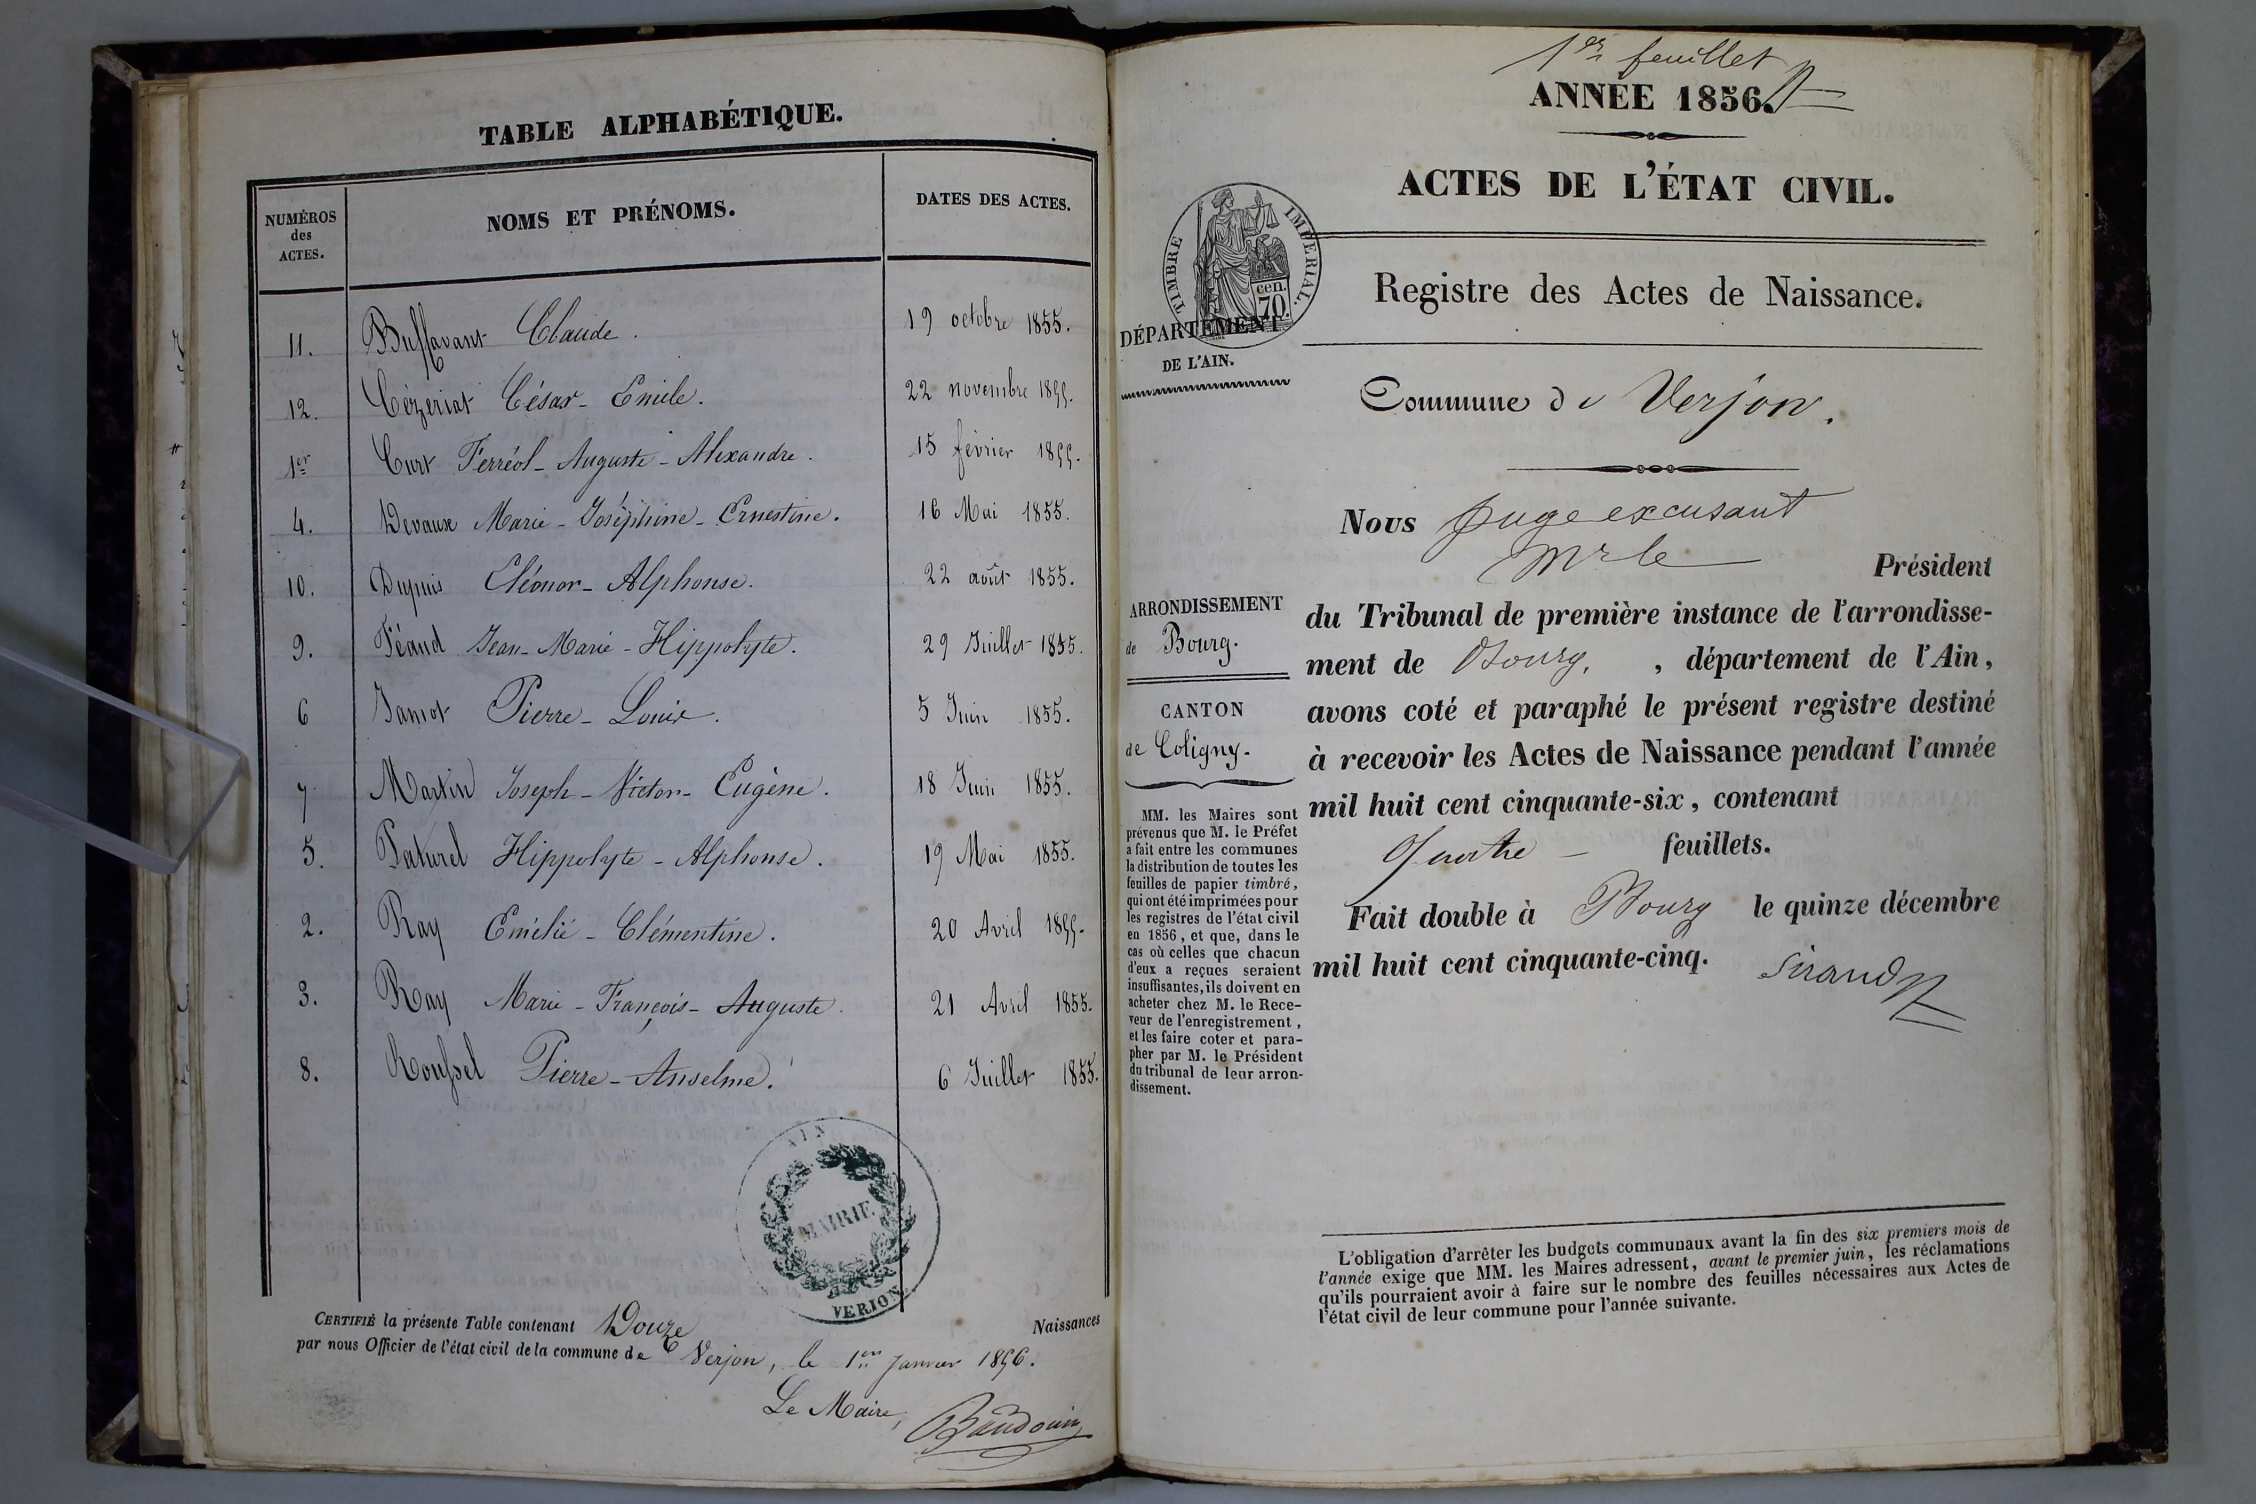 TABLE ALPHABÉTIQUE.
NUMÉROS
des
ACTES.
NOMS ET PRÉNOMS.
DATES DES ACTES.
11. Buffavant Claude. 19 octobre 1855.
12. Cézeriat César-Emile. 22 novembre 1855.
1er Curt Ferréol-Auguste-Alexandre. 15 février 1855.
4. Devaux Marie-Joséphine-Ernestine. 16 Mai 1855.
10. Dupuis Eléonor-Alphonse. 22 août 1855.
9. Féaud Jean-Marie-Hippolyte. 29 Juillet 1855.
6 Janiot Pierre-Louis. 5 Juin 1855.
7 Martin Joseph-Victor-Eugène. 18 Juin 1855.
5. Paturel Hippolyte-Alphonse. 19 Mai 1855.
2. Ray Emélie-Clémentine. 20 Avril 1855.
3. Ray Marie-François-Auguste. 21 Avril 1855.
8. Roussel Pierre-Anselme. 6 Juillet 1855.
AIN
MAIRIE
VERJON
CERTIFIÉ la présente Table contenant Douze Naissances
par nous Officier de l'état civil de la commune de Verjon, le 1er Janvier 1856.
Le Maire,
Baudouin
1er feuillet
ANNÉE 1856.
ACTES DE L'ÉTAT CIVIL.
TIMBRE IMPERIAL.
cen.
70.
Registre des Actes de Naissance.
DÉPARTEMENT
DE L'AIN.
Commune de Verjon.
Nous Juge excusant
Mr le Président
du Tribunal de première instance de l'arrondisse-
ment de Bourg, , département de l'Ain,
avons coté et paraphé le présent registre destiné
à recevoir les Actes de Naissance pendant l'année
mil huit cent cinquante-six, contenant
Quatre feuillets.
Fait double à Bourg le quinze décembre
mil huit cent cinquante-cinq.
Sirand
ARRONDISSEMENT
de Bourg.
CANTON
de Coligny.
MM. les Maires sont
prévenus que M. le Préfet
a fait entre les communes
la distribution de toutes les
feuilles de papier timbré,
qui ont été imprimées pour
les registres de l'état civil
en 1856, et que, dans le
cas où celles que chacun
d'eux a reçues seraient
insuffisantes, ils doivent en
acheter chez M. le Rece-
veur de l'enregistrement,
et les faire coter et para-
pher par M. le Président
du tribunal de leur arron-
dissement.
L'obligation d'arrêter les budgets communaux avant la fin des six premiers mois de
l'année exige que MM. les Maires adressent, avant le premier juin, les réclamations
qu'ils pourraient avoir à faire sur le nombre des feuilles nécessaires aux Actes de
l'état civil de leur commune pour l'année suivante.